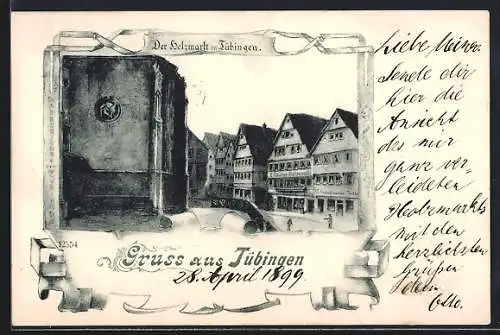 Der Holzmarkt in Tübingen.
32554
Gruss aus Tübingen
28. April 1899.
Liebe Minna.
Sende dir
hier die
Ansicht
des mir
ganz ver-
leideten
Holzmarkts
mit den
herzlichsten
Grüßen
dein
Otto.